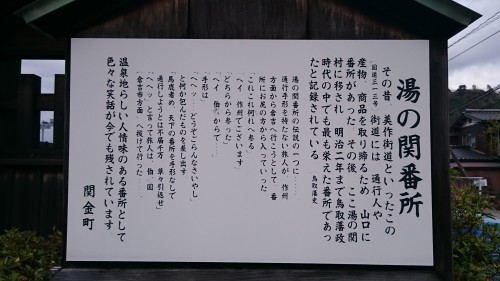 湯の関番所
その昔 美作街道といったこの
(国道三一三号)街道には 通行人や
産物 商品を取り締るため 山口に
番所があった その後 ここ湯の関
村に移され 明治二年まで鳥取藩政
時代の中でも最も栄えた番所であっ
たと記録されている 鳥取藩史
湯の関番所の伝説の一つに…
通行手形を持たない旅人が 作州
方面から倉吉へ行こうとして 番
所にお尻の方から入っていった
「これこれ何れへ参る」
「ヘイ 作州でございます」
「どちらから参った」
「ヘイ 伯からで…」
「手形は」
「ヘイ どうぞごらんなさいやし」
と何か包んだものを差し出す
「馬鹿者め 天下の番所を手形なしで
通行しようとは不届千万 早々引返せ」
「ヘヘッ」と言って旅人は、伯 国
倉吉市方面 へ抜けて行った……
温泉地らしい人情味のある番所として
色々な笑話が今でも残されています
関金町